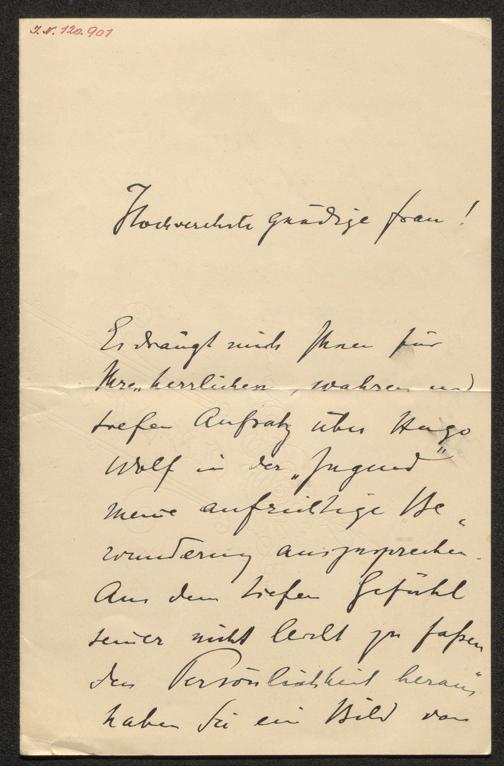 I.N. 120.901
Hochverehrte gnädige Frau!
Es drängt mich Ihnen für
Ihren herrlichen, wahren und
tiefen Aufsatz über Hugo
Wolf in der „Jugend"
meine aufrichtige Be„
wunderung auszusprechen.
Aus dem tiefen Gefühl
seiner nicht leicht zu faßen
den Persönlichkeit heraus
haben Sie ein Bild von